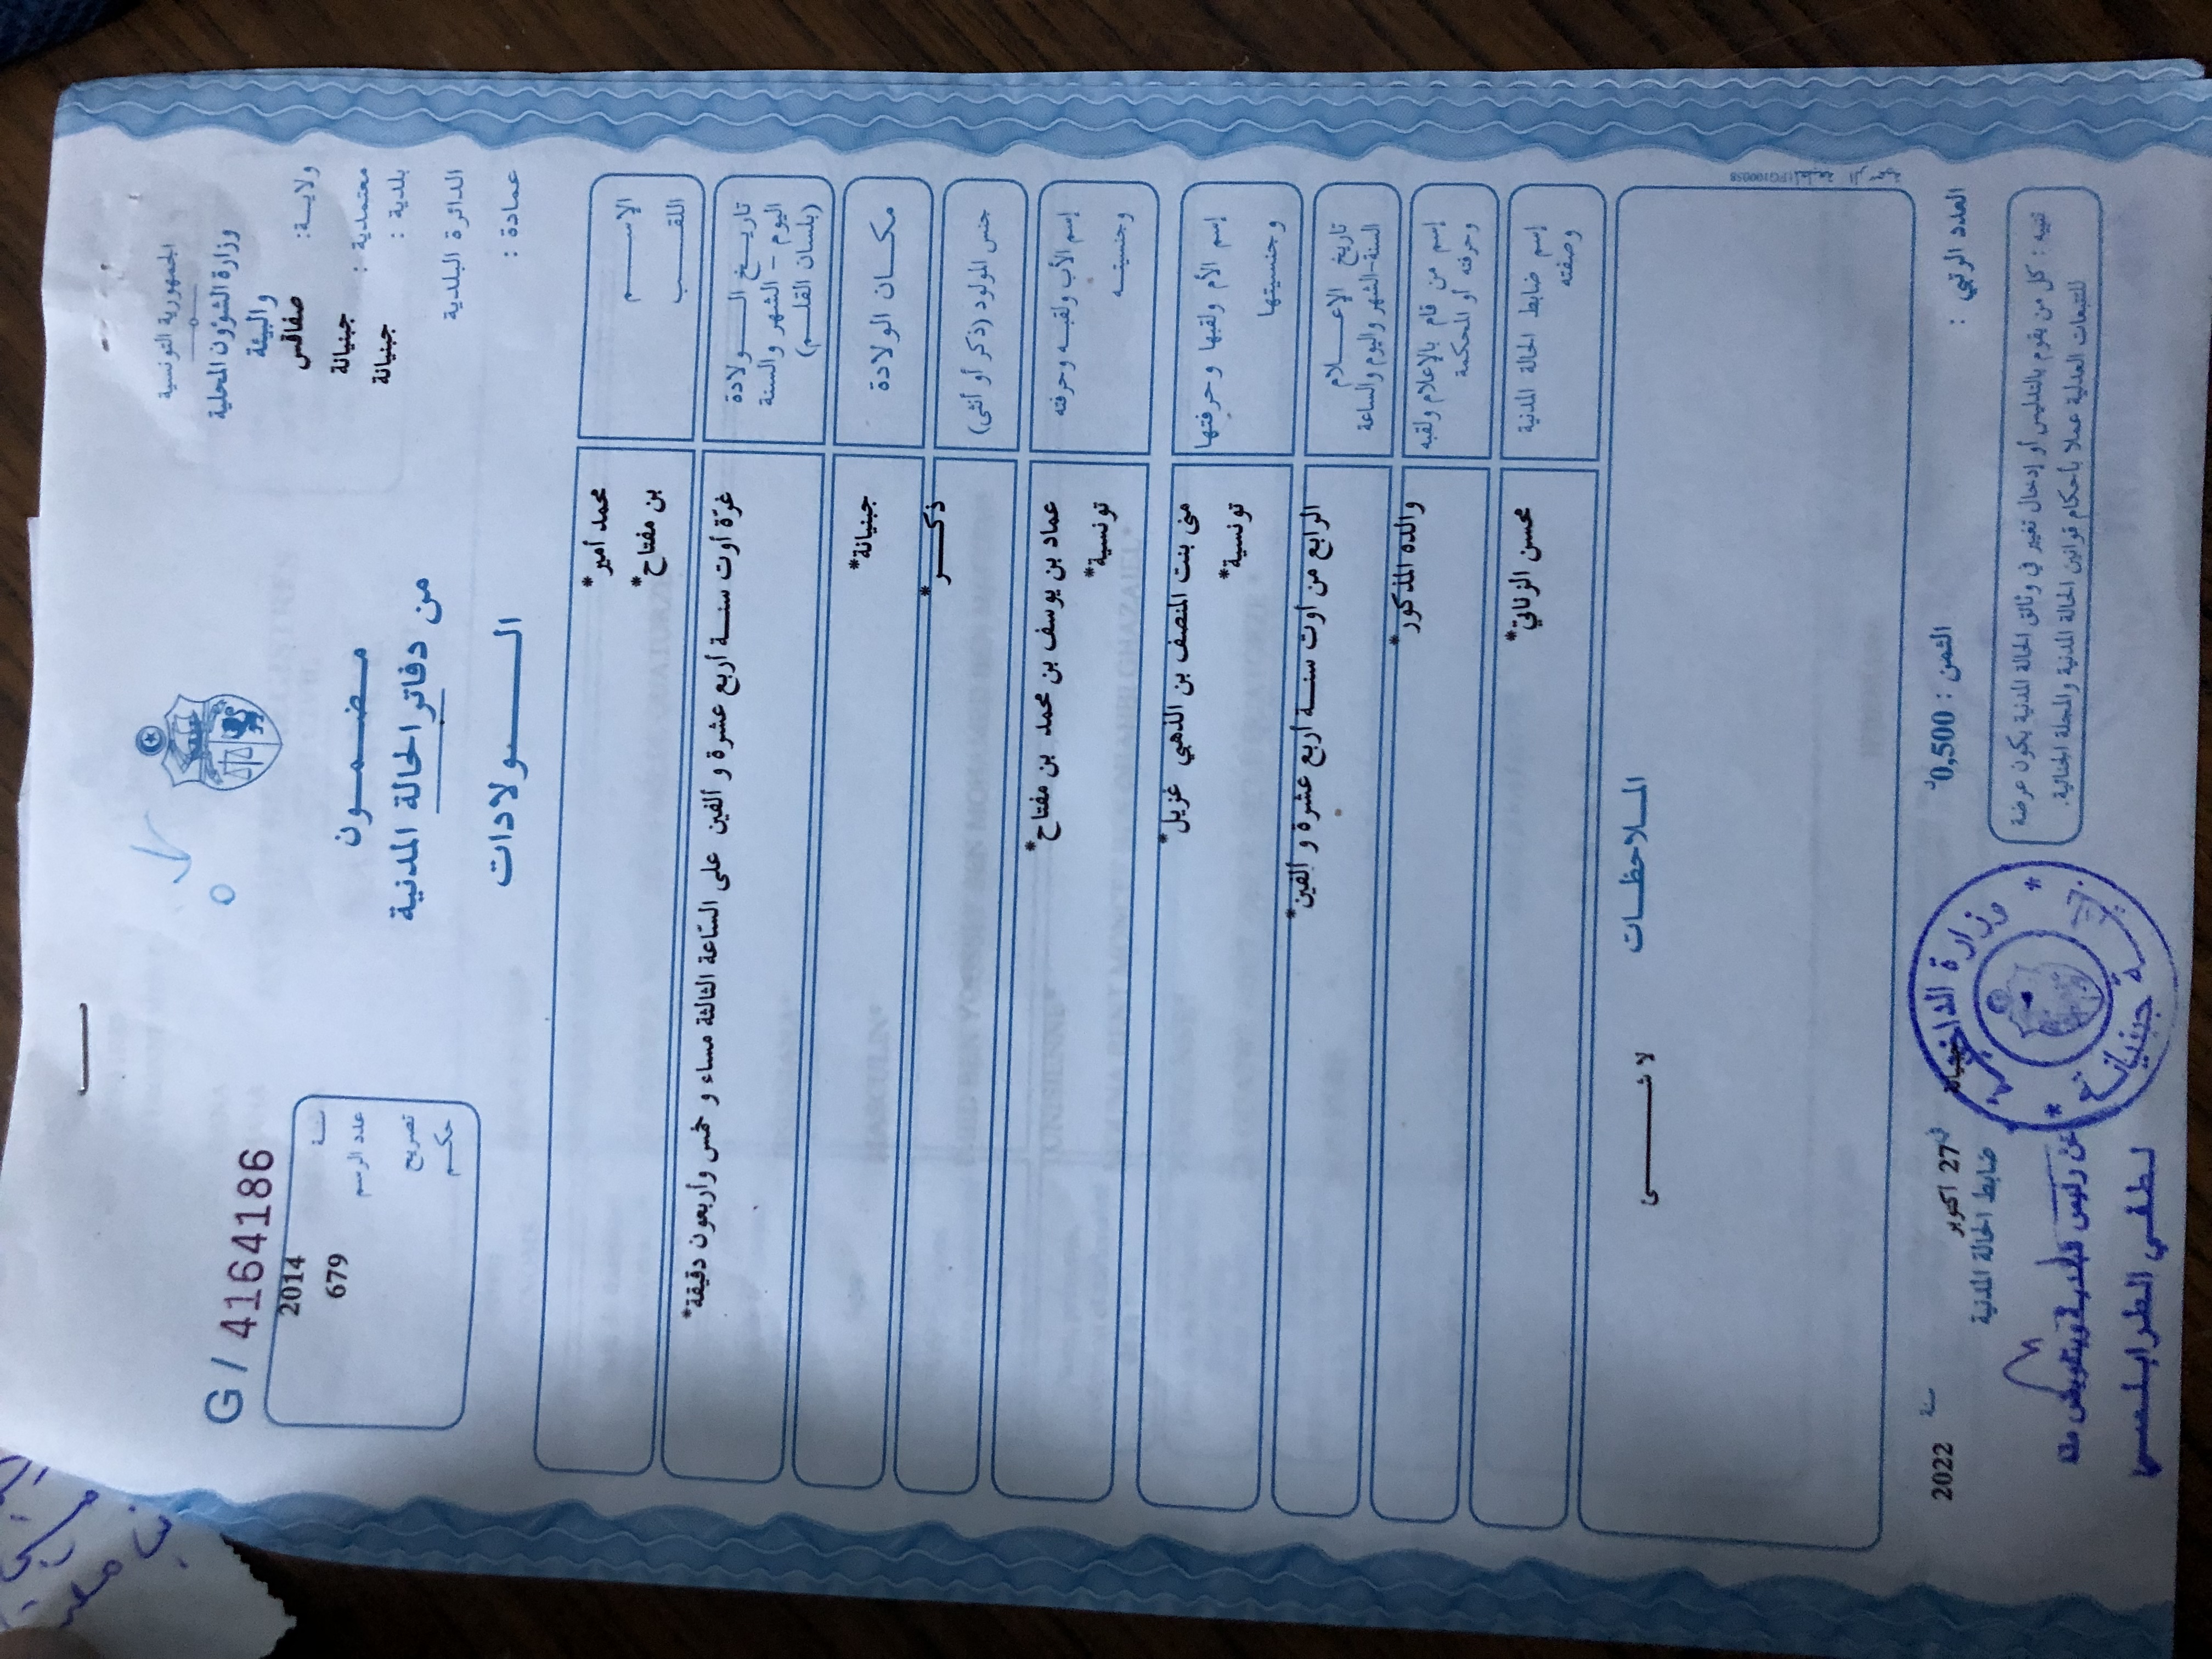 الجمهورية التونسية
وزارة الشؤون المحلية
والبيئة
ولايـــة: صفاقس
معتمدية : جبنيانة
بلدية : جبنيانة
الدائرة البلدية
عمادة :
مــضــمــــون
من دفاتر الحالة المدنية
الـــــولادات
G / 4164186
سنة 2014
عدد الرسم 679
تصريح
حكـم
الإســــــم محمد أمير*
اللقـــب بن مفتاح*
تاريـــخ الـــــولادة
اليوم – الشهر والسنة
(بلسان القلـــم)
غرّة أوت سنــــة أربع عشرة و ألفين على السّاعة الثالثة مساء و خمس وأربعون دقيقة*
مكـــان الولادة جبنيانة*
جنس المولود (ذكر أو أنثى) ذكــــر*
إسم الأب ولقبــه وحرفته عماد بن يوسف بن محمد بن مفتاح*
وجنسيتـــه تونسية*
إسم الأم ولقبها وحرفتها منى بنت المنصف بن الذهبي غزيل*
وجنسيتها تونسية*
تاريخ الإعـــــلام
السنة-الشهر واليوم والساعة
الرابع من أوت سنــــة أربع عشرة و ألفين*
إسم من قام بالإعلام ولقبه
وحرفته أو المحكمة
والده المذكور*
إسم ضابط الحالة المدنية
وصفته
محسن الزناتي*
المــلاحظــات
لا شـــــــئ
العدد الرتبي :
الثمن : 0,500د
في 27 اكتوبر سنة 2022
ضابط الحالة المدنية
تنبيه : كل من يقوم بالتدليس أو إدخال تغيير في وثائق الحالة المدنية يكون عرضة
للتتبعات العدلية عملا بأحكام قوانين الحالة المدنية والمجلة الجنائية.
وزارة الداخلية
جبنيانة
عن رئيس البلدية وبتفويض منه
لطفي الطرابلسي